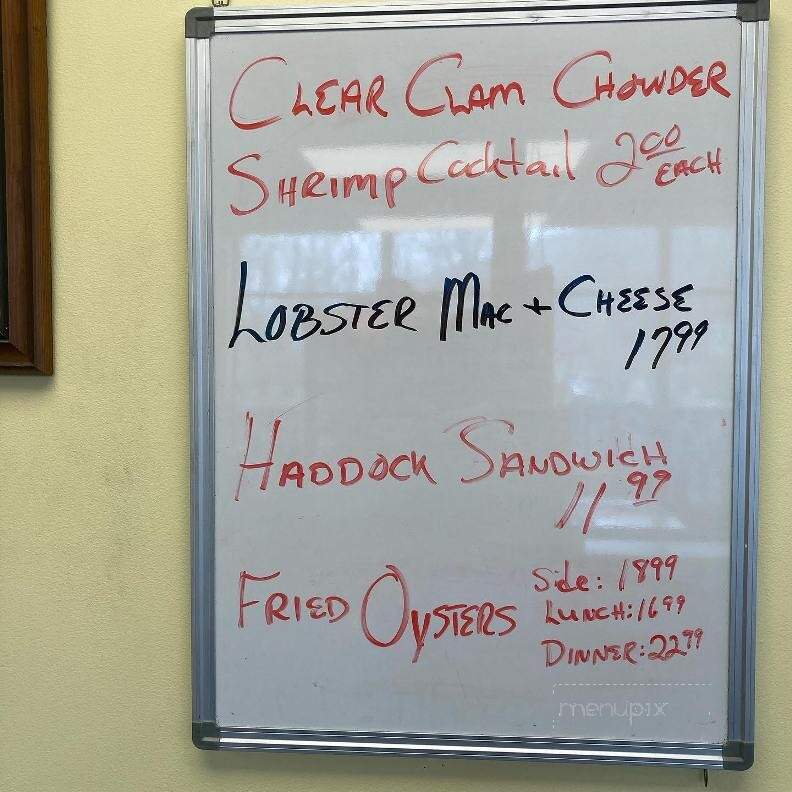 CLEAR CLAM CHOWDER
SHRIMP Cocktail 2.00 EACH
LOBSTER MAC + CHEESE
17.99
HADDOCK SANDWICH
11.99
FRIED OYSTERS
Side: 1899
LUNCH: 1699
DINNER: 22.99
menupix